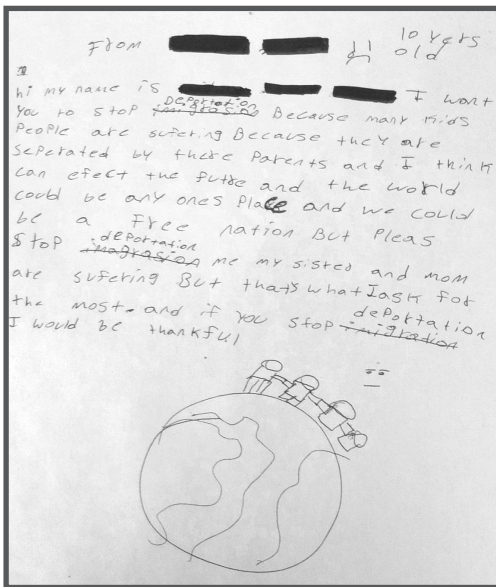 From 10 years old
hi my name is I want
You to stop deportation Because many kids
People are sufering Because they are
seperated by there Parents and I think
can efect the futre and the world
could be any ones Place and we could
be a free nation But Pleas
Stop deportation me my sister and mom
are sufering But that's what I ask for
the most. and if you stop deportation
I would be thankful